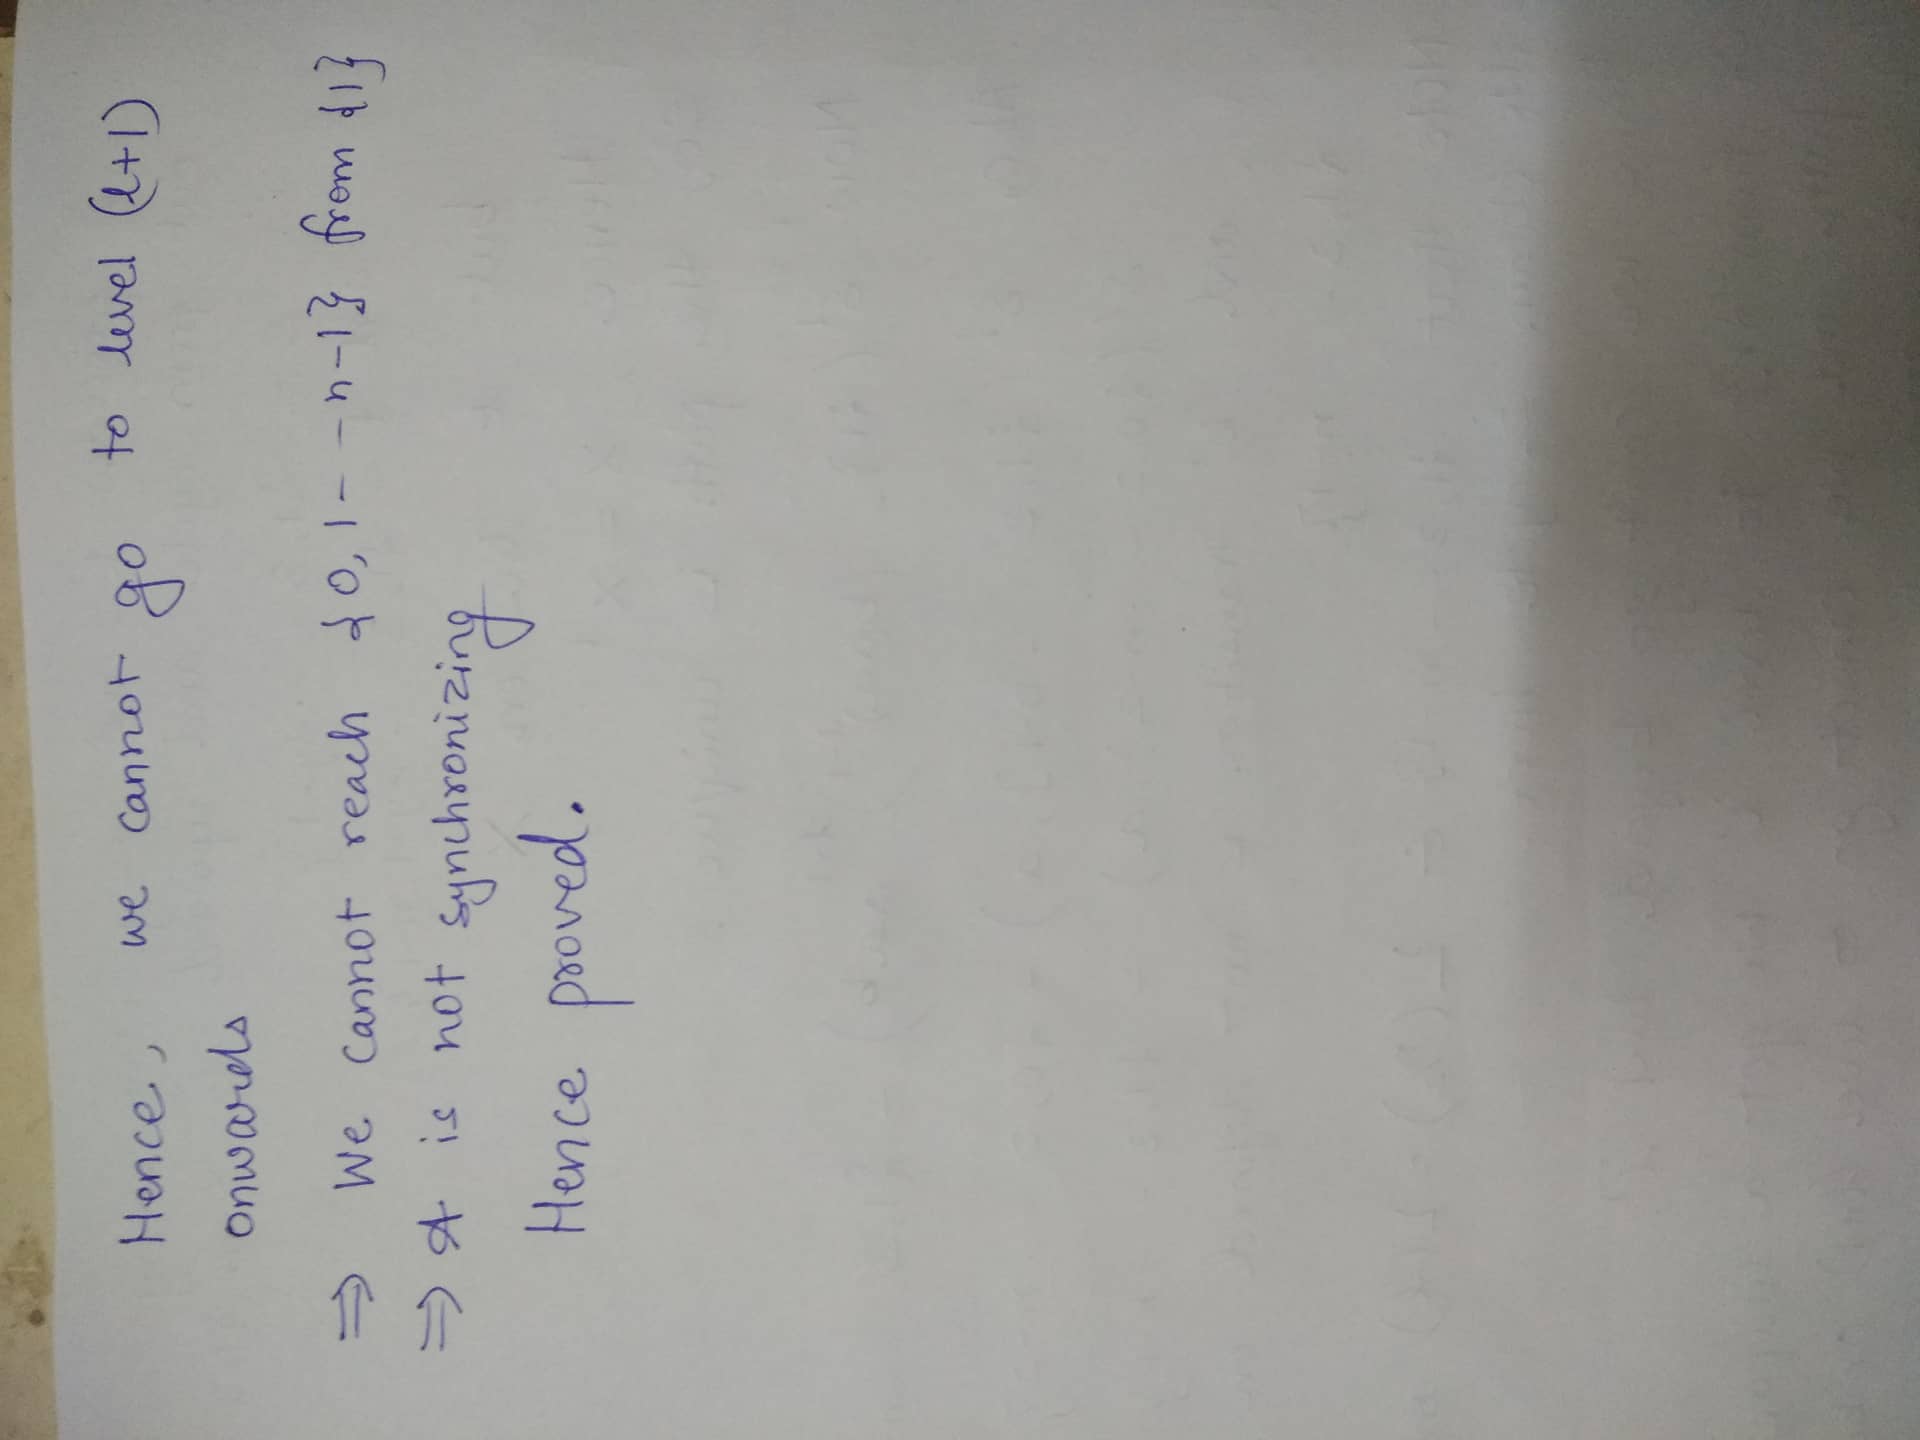 Hence, we cannot go to level (l+1)
onwards
⇒ We cannot reach {0, 1 - - n-1} from {1}
⇒ A is not synchronizing
Hence proved.